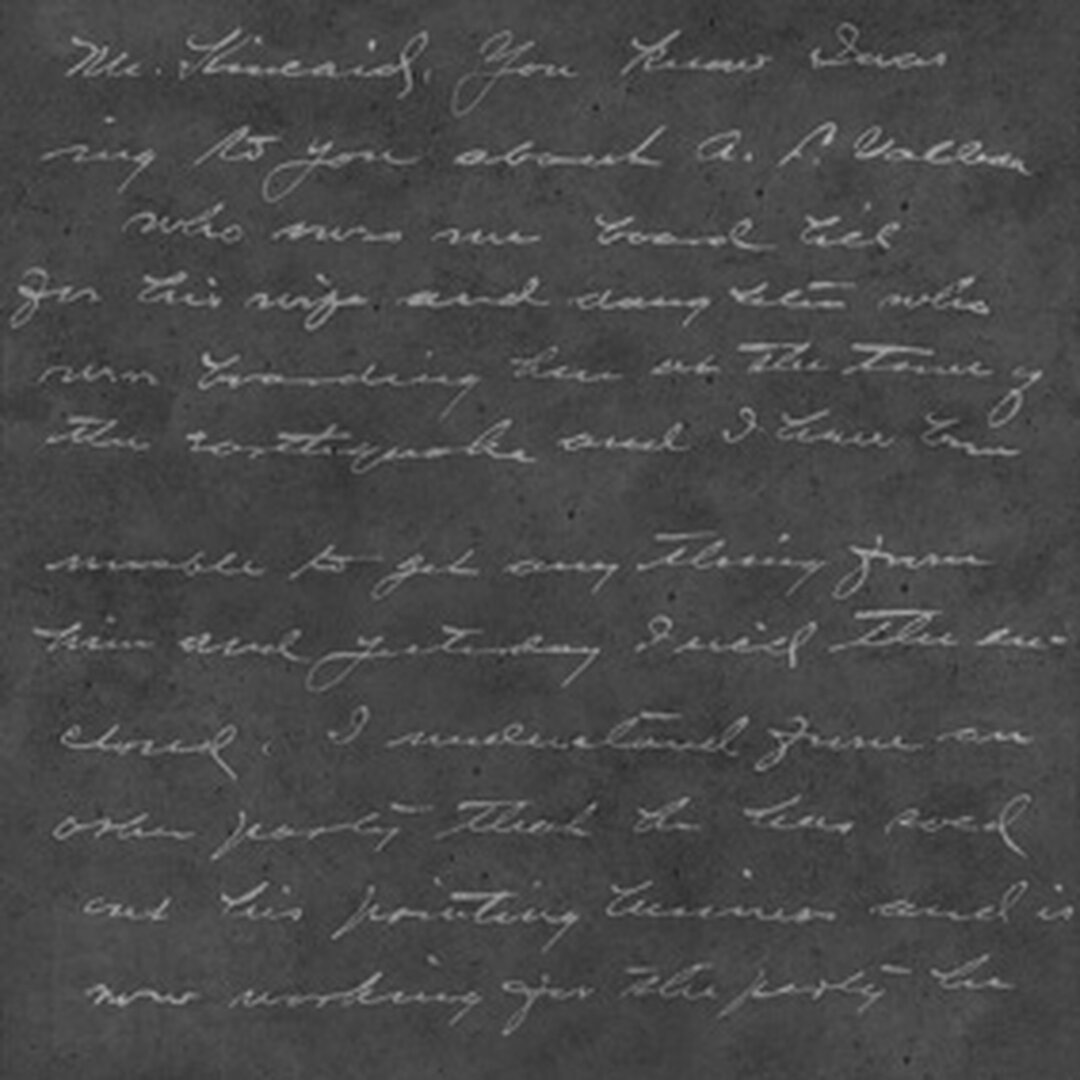 Mr. Kincaid, You know I was
ing to you about A. L.
who owes me board bill
for his wife and daughter who
were boarding here at the time of
the earthquake and I have been
unable to get any thing from
him and yesterday I the en-
closed. I understand from an
other party that he has sold
out his printing business and is
now working for the party he